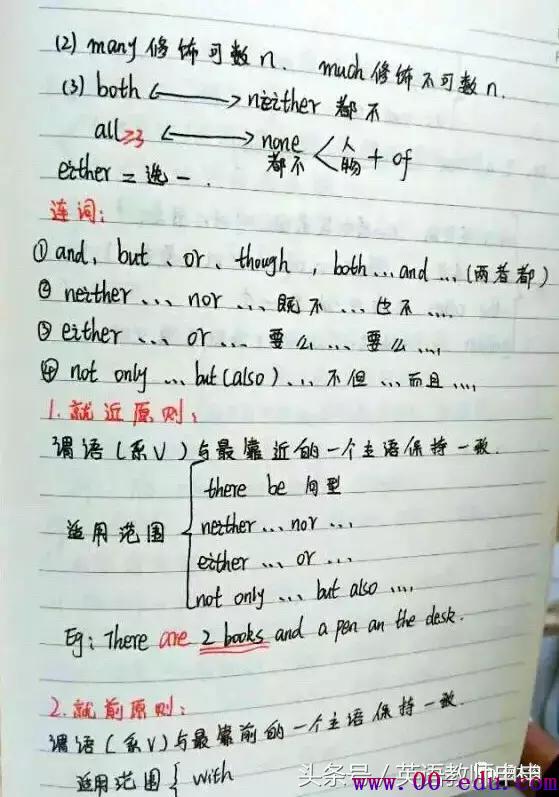 (2) many 修饰可数 n. much 修饰不可数 n.
(3) both ⟷ neither 都不
all≥3 ⟷ none 都不 < 人 物 + of
either = 选一.
连词:
① and, but、or、though, both...and...(两者都)
② neither ... nor ... 既不...也不....
③ either ... or ... 要么 ... 要么 ....
④ not only ... but (also) ... 不但 ...而且 ....
1.就近原则:
谓语(系V)与最靠近的一个主语保持一致.
适用范围 { there be 句型
neither ... nor ...
either ... or ...
not only ... but also ....
Eg: There are 2 books and a pen an the desk.
2.就前原则:
谓语(系V)与最靠前的一个主语保持一致.
适用范围 { with
头条号/英语教师
www.00-edu.com